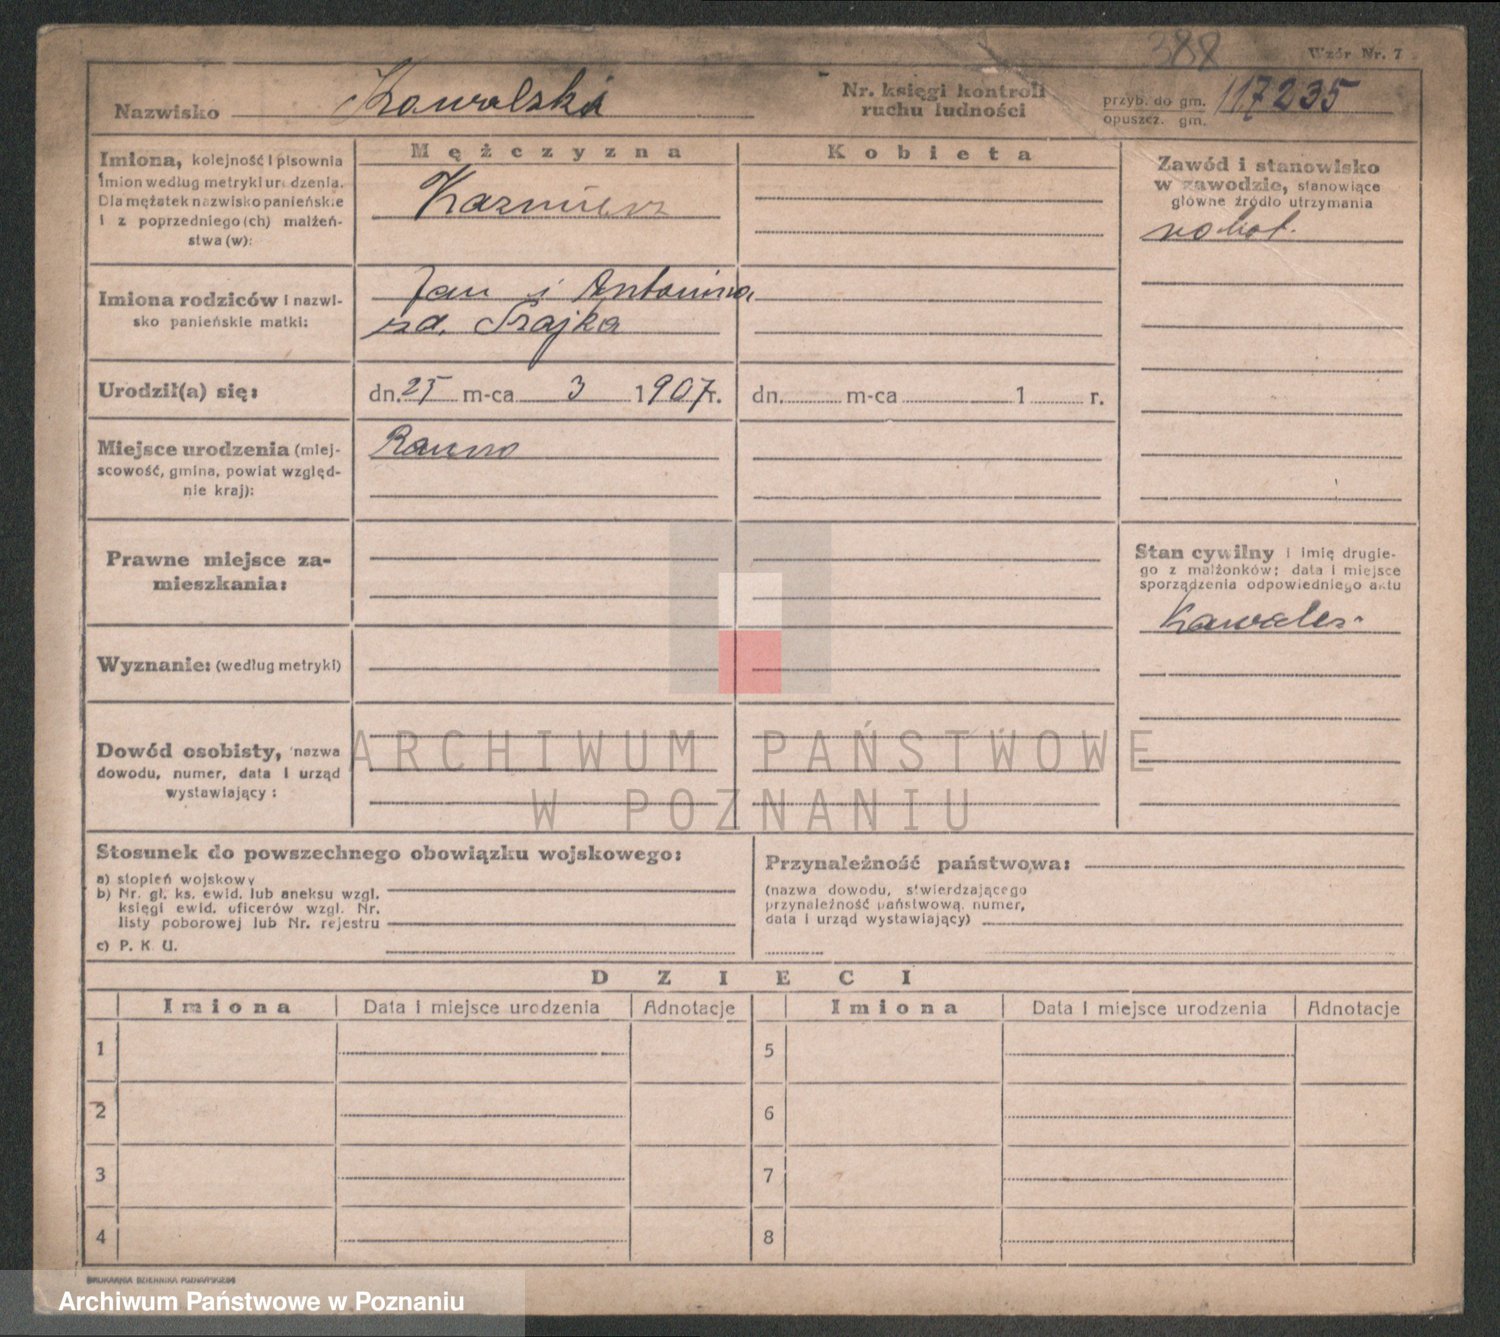 388
Wzór Nr. 7
Nazwisko Kowalski
Nr. księgi kontroli
ruchu ludności
przyb. do gm.
opuszcz. gm.
117235
Imiona, kolejność i pisownia
imion według metryki urodzenia.
Dla mężatek nazwisko panieńskie
i z poprzedniego (ch) małżeń-
stwa (w):
Mężczyzna
Kazmierz
Kobieta
Zawód i stanowisko
w zawodzie, stanowiące
główne źródło utrzymania
robot.
Imiona rodziców i nazwi-
sko panieńskie matki:
Jan i Antonina
zd. Szajka
Urodził(a) się:
dn. 25 m-ca 3 1907 r.
dn. m-ca 1 r.
Miejsce urodzenia (miej-
scowość, gmina, powiat wzgléd-
nie kraj):
Prawne miejsce za-
mieszkania:
Stan cywilny i imię drugie-
go z małżonków; data i miejsce
sporządzenia odpowiedniego aktu
Kawaler
Wyznanie: (według metryki)
Dowód osobisty, nazwa
dowodu, numer, data i urząd
wystawiający:
ARCHIWUM PAŃSTWOWE
W POZNANIU
Stosunek do powszechnego obowiązku wojskowego:
a) stopień wojskowy
b) Nr. gł. ks. ewid. lub aneksu wzgl.
księgi ewid. oficerów wzgl. Nr.
listy poborowej lub Nr. rejestru
c) P. K. U.
Przynależność państwowa:
(nazwa dowodu, stwierdzającego
przynależność państwową, numer,
data i urząd wystawiający)
DZIECI
Imiona Data i miejsce urodzenia Adnotacje Imiona Data i miejsce urodzenia Adnotacje
1 5
2 6
3 7
4 8
DRUKARNIA DZIENNIKA POZNAŃSKIEGO
Archiwum Państwowe w Poznaniu